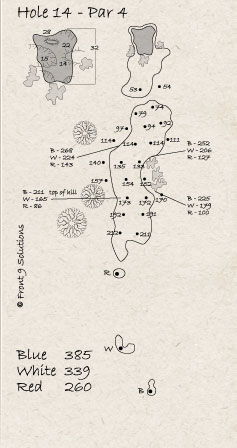 Hole 14 - Par 4
28
22
32
15
14
53
54
79
74
97
94
92
114
114
114
111
B - 268
W - 224
R - 143
B - 252
W - 206
R - 127
140
135
133
157
154
152
B - 211 top of hill
W - 165
R - 86
173
172
170
B - 225
W - 179
R - 100
192
191
212
211
R
© Front 9 Solutions
W
B
Blue 385
White 339
Red 260